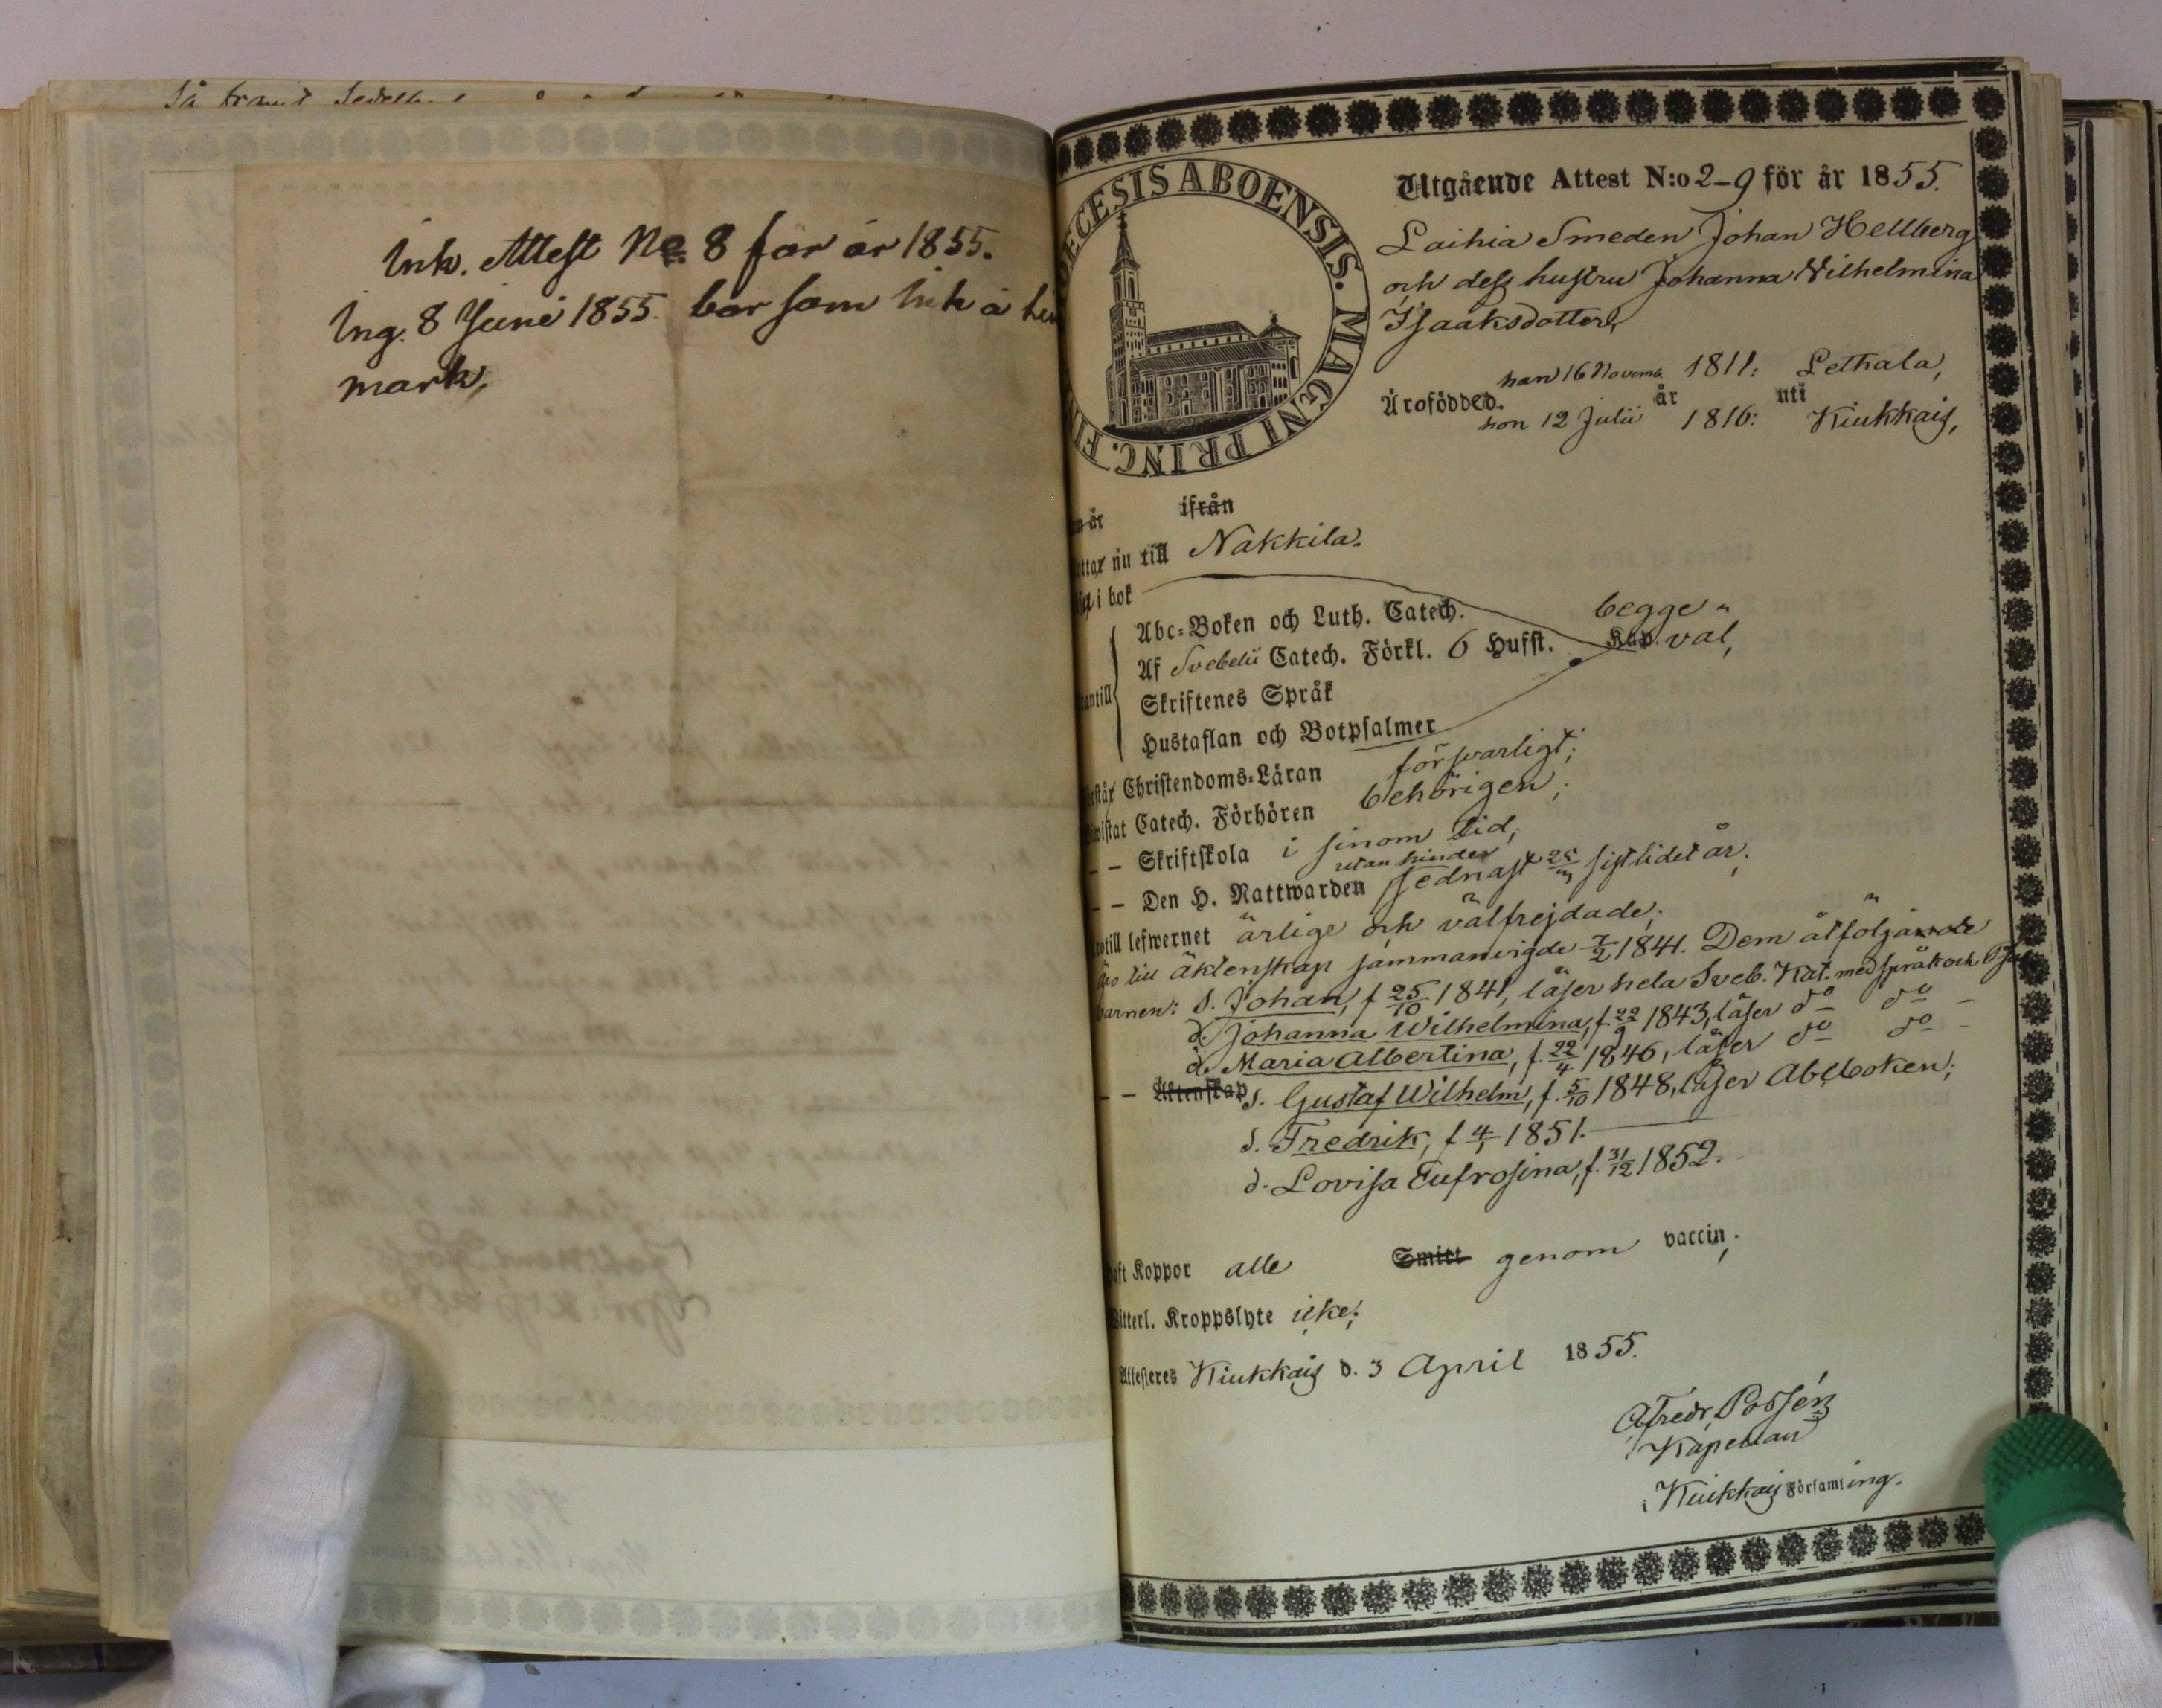 Så framt
Ink. Attest No 8 för år 1855.
Ing. 8 Juni 1855. bor som Ink å
mark,
DIOECESIS ABOENSIS. MAGNI PRINC.
Utgående Attest N:o 2-9 för år 1855.
Laihia Smeden Johan Hellberg
och dess hustru Johanna Wilhelmina
Isaaksdotter,
han 16 Novemb. 1811: Lethala,
Äro födde. år uti
hon 12 Julii 1816: Kiukkais,
är ifrån
nu till Nakkila.
i bok
Abc-Boken och Luth. Catech. begge
Af Svebelii Catech. Förkl. 6 Hufst. Kap. väl,
antill
Skriftenes Språk
Hustaflan och Botpsalmer
Christendoms-Läran försvarligt;
Catech. Förhören behörigen;
– – Skriftskola i sinom tid;
utan hinder
– – Den H. Nattwarden sednast sistlidet år;
till lefwernet ärlige och välfrejdade;
äro till äktenskap sammanvigde 7/2 1841. Dem åtföljande
barnen: S. Johan, f 25/10 1841, läser hela Sveb. Kat. med språk och
d. Johanna Wilhelmina, f. 22/9 1843, läser do do –
d. Maria Albertina, f. 22/4 1846, läser do do –
– – Äktenskap s. Gustaf Wilhelm, f. 5/10 1848, läser Abcboken;
s. Fredrik, f 4/1 1851.
d. Lovisa Eufrosina, f. 31/12 1852.
Koppor alle Smitt genom vaccin;
Witterl. Kroppslyte icke;
Attesteres Kiukkais d. 3 April 1855.
Kapellan
i Kiukkais Församling.